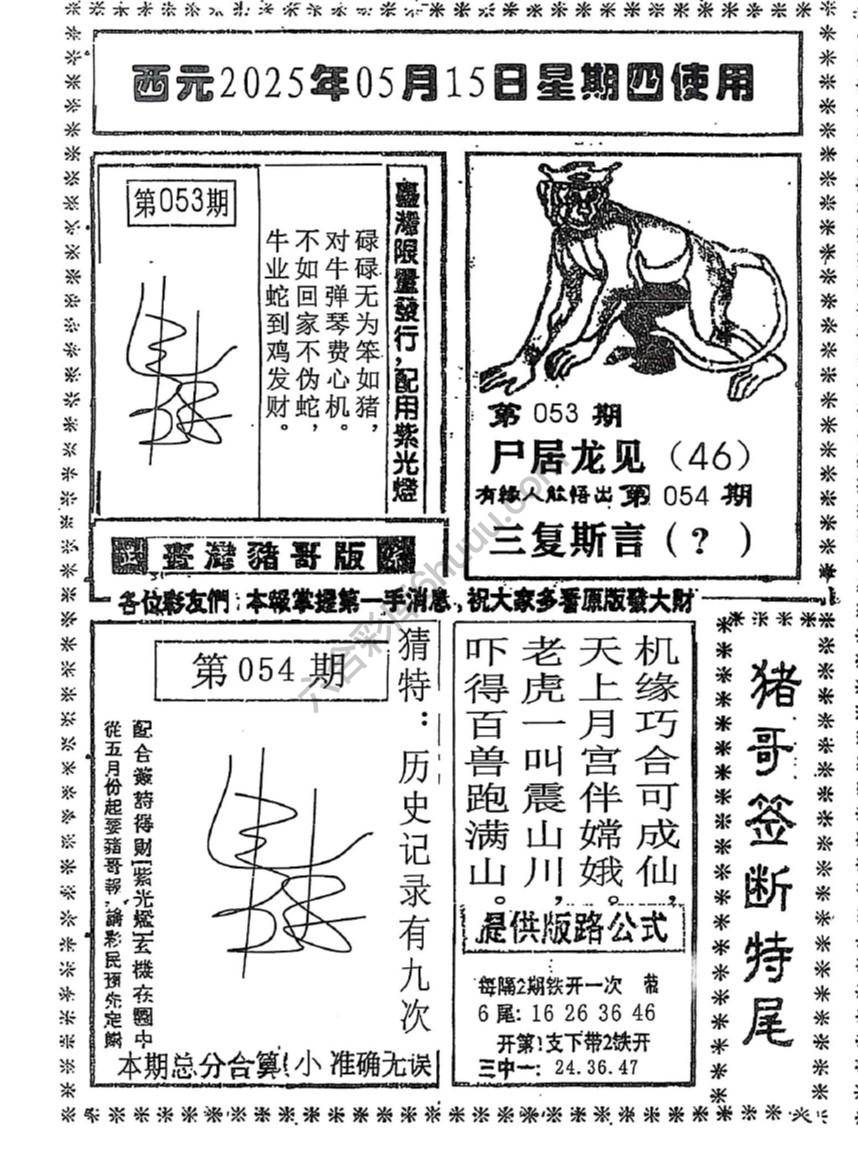 西元2025年05月15日星期四使用
第053期
臺灣限量發行，配用紫光燈
碌碌无为笨如猪，
对牛弹琴费心机。
不如回家不伪蛇，
牛业蛇到鸡发财。
臺灣豬哥版
第 053 期
尸居龙见（46）
有緣人能悟出 第 054 期
三复斯言（？）
各位彩友們：本報掌握第一手消息，祝大家多看原版發大財
第054期
猜特：历史记录有九次
配合籤詩得財[紫光燈]玄機在圖中
從五月份起要豬哥報，請彩民預先定購
本期总分合算(小 准确无误
机缘巧合可成仙，
天上月宫伴嫦娥。
老虎一叫震山川，
吓得百兽跑满山。
提供版路公式
每隔2期铁开一次 带
6尾: 16 26 36 46
开第1支下带2铁开
三中一: 24.36.47
猪哥签断特尾
六合彩库6huuu.com